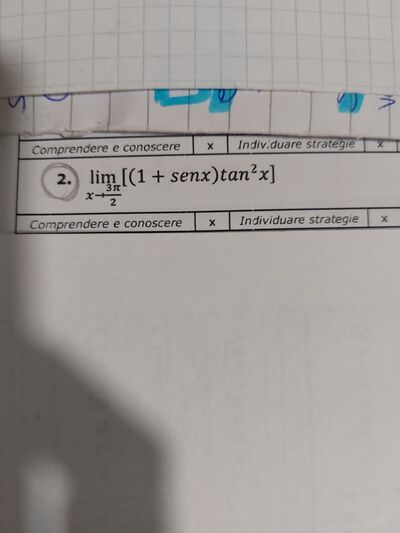 Comprendere e conoscere x Individuare strategie x
2. lim x→3π/2 [(1 + senx)tan²x]
Comprendere e conoscere x Individuare strategie x